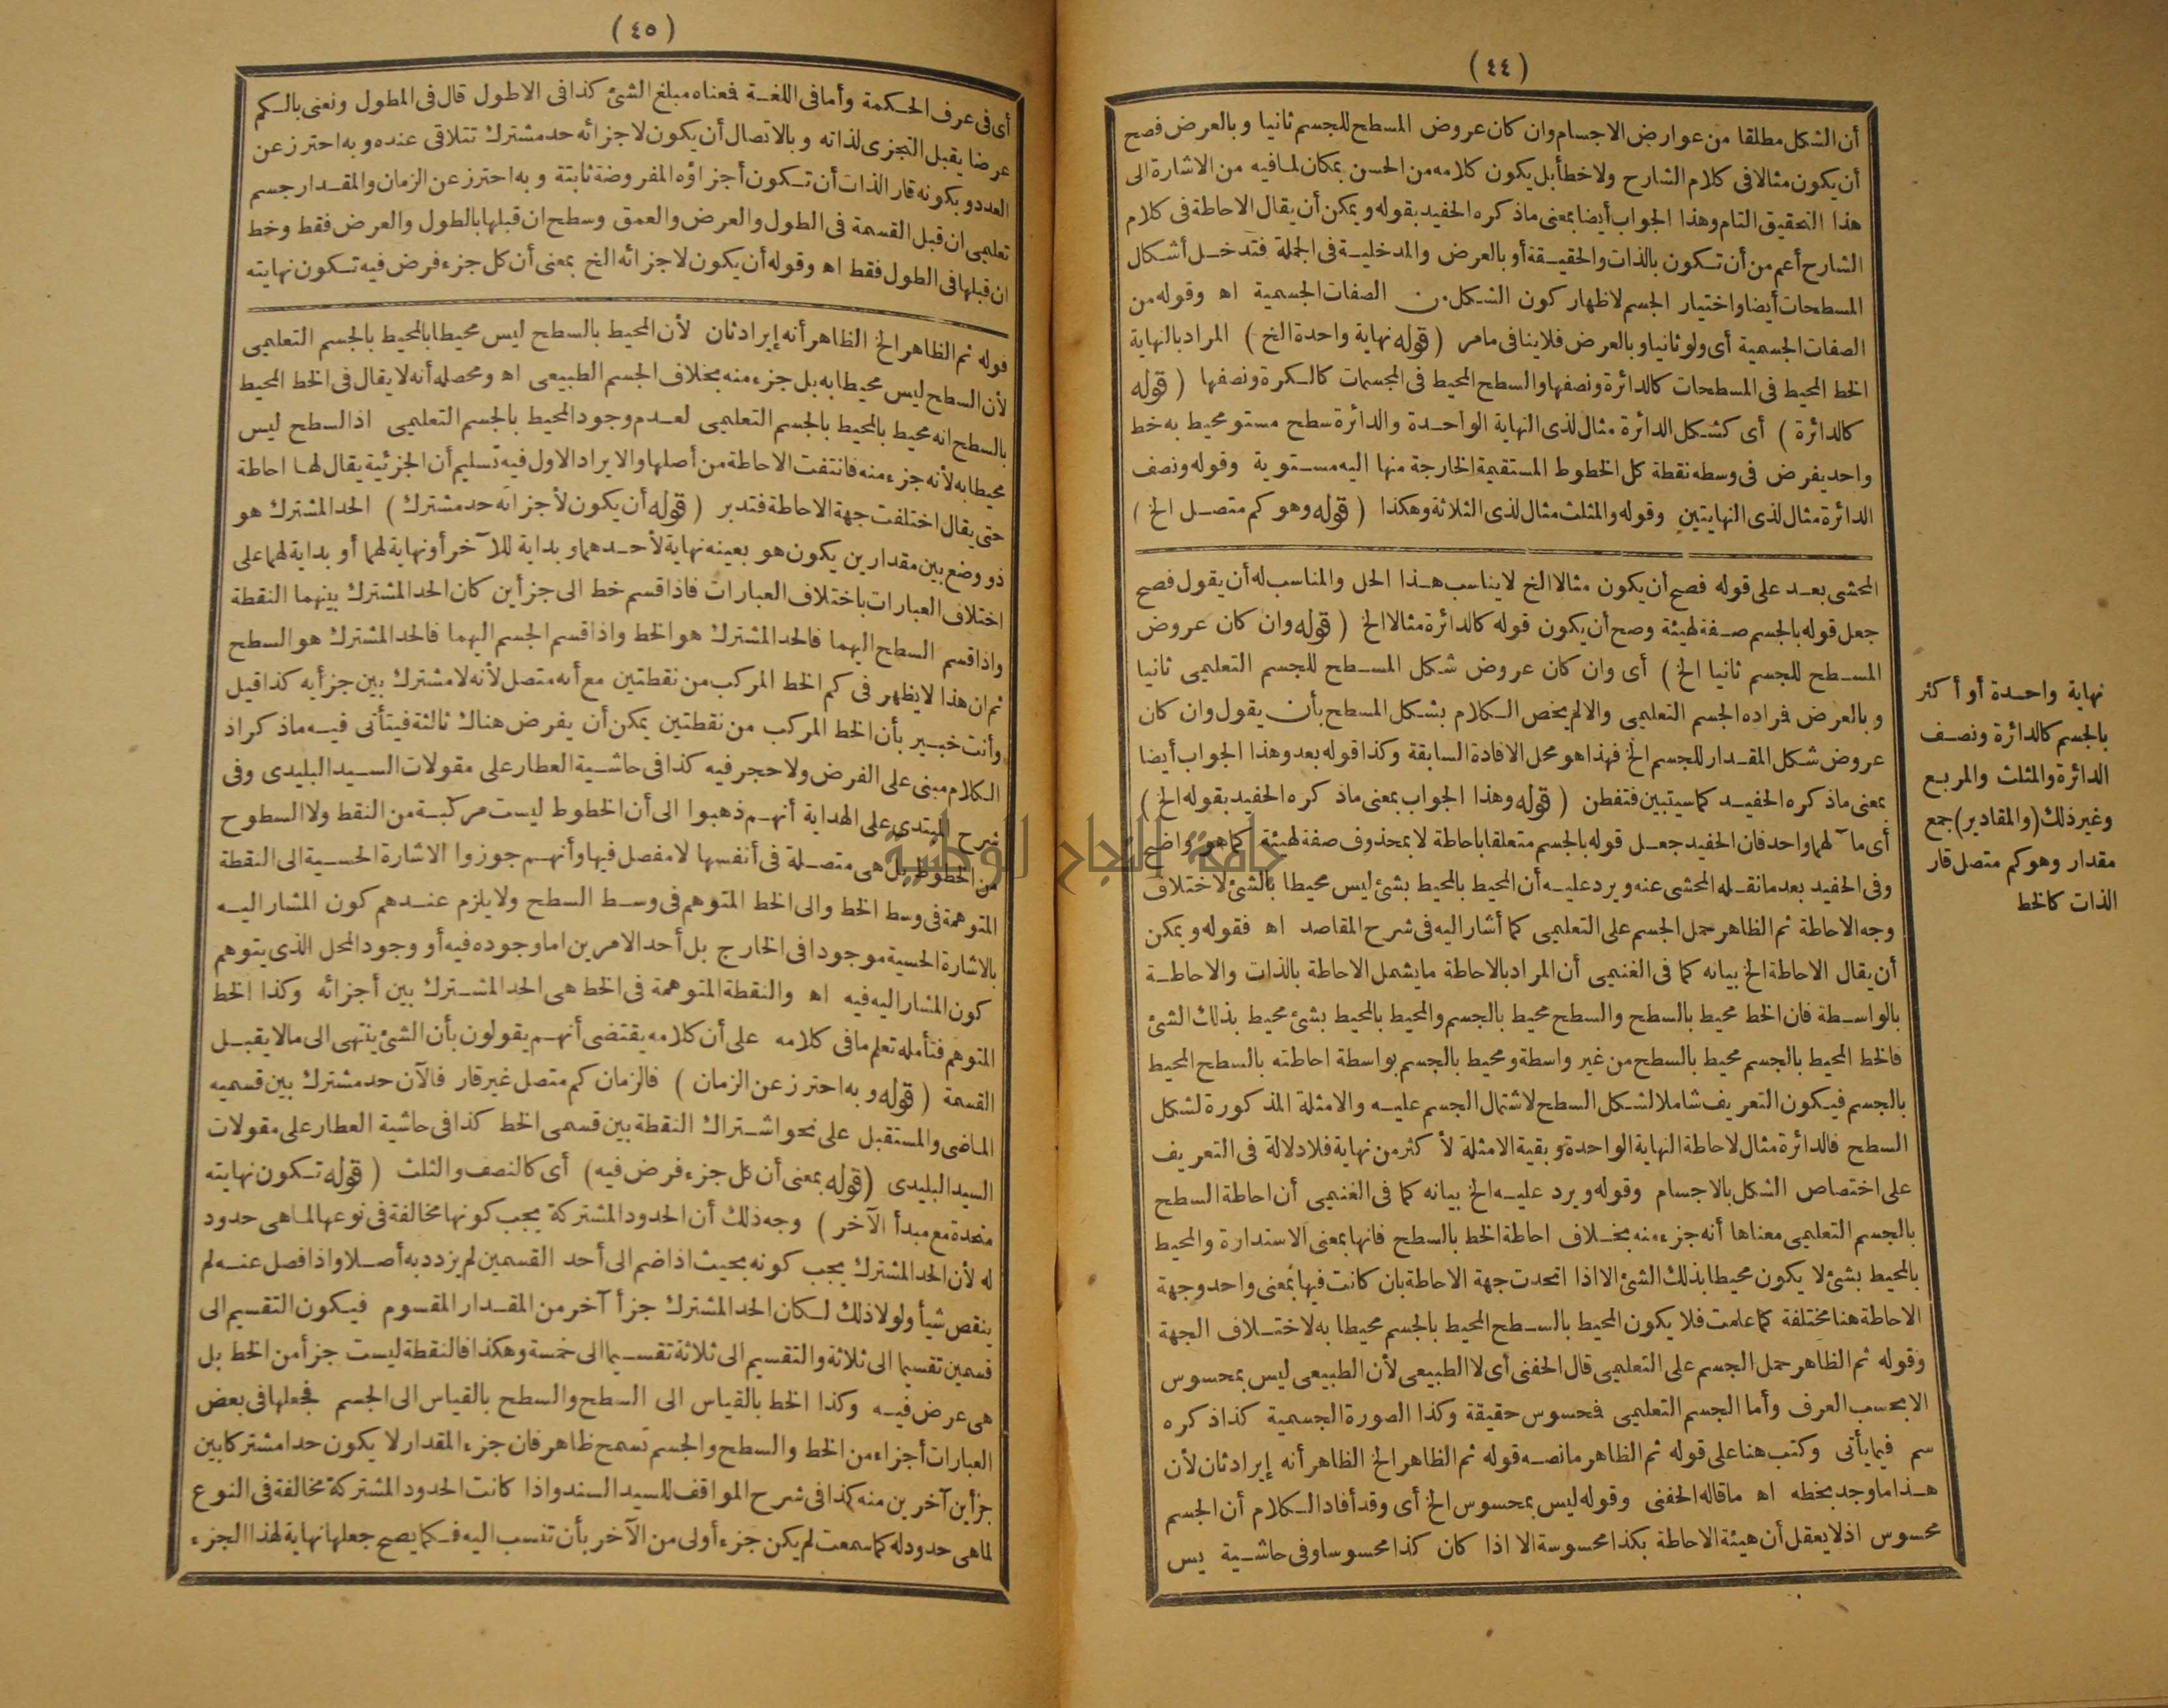 (٤٤)
أن الشكل مطلقا من عوارض الاجسام وان كان عروض المسطح للجسم ثانيا وبالعرض فصح
أن يكون مثالا فى كلام الشارح ولا خطأ بل يكون كلامه من الحسن بمكان لما فيه من الاشارة الى
هذا التحقيق التام وهذا الجواب أيضا بمعنى ماذكره الحفيد بقوله ويمكن أن يقال الاحاطة فى كلام
الشارح أعم من أن تكون بالذات والحقيقة أو بالعرض والمدخلية فى الجملة فتدخل أشكال
المسطحات أيضا واختيار الجسم لاظهار كون الشكل من الصفات الجسمية اه وقوله من
الصفات الجسمية أى ولو ثانيا وبالعرض فلا ينافى مامر (قوله نهاية واحدة الخ) المراد بالنهاية
الخط المحيط فى المسطحات كالدائرة ونصفها والسطح المحيط فى المجسمات كالكرة ونصفها (قوله
كالدائرة) أى كشكل الدائرة مثال لذى النهاية الواحدة والدائرة سطح مستو محيط به خط
واحد يفرض فى وسطه نقطة كل الخطوط المستقيمة الخارجة منها اليه مستوية وقوله ونصف
الدائرة مثال لذى النهايتين وقوله والمثلث مثال لذى الثلاثة وهكذا (قوله وهو كم متصل الخ)
المحشى بعد على قوله فصح أن يكون مثالا الخ لا يناسب هذا الحل والمناسب له أن يقول فصح
جعل قوله بالجسم صفة لهيئة وصح أن يكون قوله كالدائرة مثالا الخ (قوله وان كان عروض
المسطح للجسم ثانيا الخ) أى وان كان عروض شكل المسطح للجسم التعليمى ثانيا
وبالعرض فراده الجسم التعليمى والا لم يخص الكلام بشكل المسطح بأن يقول وان كان
عروض شكل المقدار للجسم الخ فهذا هو محل الافادة السابقة وكذا قوله بعد وهذا الجواب أيضا
بمعنى ماذكره الحفيد كما سيتبين فتفطن (قوله وهذا الجواب بمعنى ماذكره الحفيد بقوله الخ)
أى مآلهما واحد فان الحفيد جعل قوله بالجسم متعلقا باحاطة لا بمحذوف صفة لهيئة كما هو واضح
وفى الحفيد بعد مانقله المحشى عنه ويرد عليه أن المحيط بالمحيط بشئ ليس محيطا بالشئ لاختلاف
وجه الاحاطة ثم الظاهر حمل الجسم على التعليمى كما أشار اليه فى شرح المقاصد اه فقوله ويمكن
أن يقال الاحاطة الخ بيانه كما فى الغنيمى أن المراد بالاحاطة مايشمل الاحاطة بالذات والاحاطة
بالواسطة فان الخط محيط بالسطح والسطح محيط بالجسم والمحيط بالمحيط بشئ محيط بذلك الشئ
فالخط المحيط بالجسم محيط بالسطح من غير واسطة ومحيط بالجسم بواسطة احاطته بالسطح المحيط
بالجسم فيكون التعريف شاملا لشكل السطح لاشتمال الجسم عليه والامثلة المذكورة لشكل
السطح فالدائرة مثال لاحاطة النهاية الواحدة وبقية الامثلة لأكثر من نهاية فلا دلالة فى التعريف
على اختصاص الشكل بالاجسام وقوله ويرد عليه الخ بيانه كما فى الغنيمى أن احاطة السطح
بالجسم التعليمى معناها أنه جزء منه بخلاف احاطة الخط بالسطح فانها بمعنى الاستدارة والمحيط
بالمحيط بشئ لا يكون محيطا بذلك الشئ الا اذا اتحدت جهة الاحاطة بان كانت فيها بمعنى واحد وجهة
الاحاطة هنا مختلفة كما علمت فلا يكون المحيط بالسطح المحيط بالجسم محيطا به لاختلاف الجهة
وقوله ثم الظاهر حمل الجسم على التعليمى قال الحفنى أى لا الطبيعى لأن الطبيعى ليس بمحسوس
الا بحسب العرف وأما الجسم التعليمى فحسوس حقيقة وكذا الصورة الجسمية كذا ذكره
سم فيما يأتى وكتب هنا على قوله ثم الظاهر مانصه قوله ثم الظاهر الخ الظاهر أنه إيراد ثان لأن
هذا ماوجد بخطه اه ماقاله الحفنى وقوله ليس بمحسوس الخ أى وقد أفاد الكلام أن الجسم
محسوس اذ لا يعقل أن هيئة الاحاطة بكذا محسوسة الا اذا كان كذا محسوسا وفى حاشية يس
نهاية واحدة أو أكثر
بالجسم كالدائرة ونصف
الدائرة والمثلث والمربع
وغير ذلك (والمقادير) جمع
مقدار وهو كم متصل قار
الذات كالخط
(٤٥)
أى فى عرف الحكمة وأما فى اللغة فعناه مبلغ الشئ كذا فى الاطول قال فى المطول ونعنى بالكم
عرضا يقبل التجزى لذاته وبالاتصال أن يكون لاجزائه حد مشترك تتلاقى عنده وبه احترز عن
العدد وبكونه قار الذات أن تكون أجزاؤه المفروضة ثابتة وبه احترز عن الزمان والمقدار جسم
تعليمى ان قبل القسمة فى الطول والعرض والعمق وسطح ان قبلها بالطول والعرض فقط وخط
ان قبلها فى الطول فقط اه وقوله أن يكون لاجزائه الخ بمعنى أن كل جزء فرض فيه تكون نهايته
قوله ثم الظاهر الخ الظاهر أنه إيراد ثان لأن المحيط بالسطح ليس محيطا بالمحيط بالجسم التعليمى
لأن السطح ليس محيطا به بل جزء منه بخلاف الجسم الطبيعى اه ومحصله أنه لا يقال فى الخط المحيط
بالسطح انه محيط بالمحيط بالجسم التعليمى لعدم وجود المحيط بالجسم التعليمى اذ السطح ليس
محيطا به لأنه جزء منه فانتفت الاحاطة من أصلها والايراد الاول فيه تسليم أن الجزئية يقال لها احاطة
حتى يقال اختلفت جهة الاحاطة فتدبر (قوله أن يكون لأجزائه حد مشترك) الحد المشترك هو
ذو وضع بين مقدارين يكون هو بعينه نهاية لأحدهما وبداية للآخر أو نهاية لهما أو بداية لهما على
اختلاف العبارات باختلاف العبارات فاذا قسم خط الى جزأين كان الحد المشترك بينهما النقطة
واذا قسم السطح اليهما فالحد المشترك هو الخط واذا قسم الجسم اليهما فالحد المشترك هو السطح
ثم ان هذا لا يظهر فى كم الخط المركب من نقطتين مع أنه متصل لأنه لا مشترك بين جزأيه كذا قيل
وأنت خبير بأن الخط المركب من نقطتين يمكن أن يفرض هناك ثالثة فيتأتى فيه ماذكر اذ
الكلام مبنى على الفرض ولا حجر فيه كذا فى حاشية العطار على مقولات السيد البليدى وفى
شرح الميبدى على الهداية أنهم ذهبوا الى أن الخطوط ليست مركبة من النقط ولا السطوح
من الخطوط بل هى متصلة فى أنفسها لا مفصل فيها وأنهم جوزوا الاشارة الحسية الى النقطة
المتوهمة فى وسط الخط والى الخط المتوهم فى وسط السطح ولا يلزم عندهم كون المشار اليه
بالاشارة الحسية موجودا فى الخارج بل أحد الامرين اما وجوده فيه أو وجود المحل الذى يتوهم
كون المشار اليه فيه اه والنقطة المتوهمة فى الخط هى الحد المشترك بين أجزائه وكذا الخط
المتوهم فتأمله تعلم مافى كلامه على أن كلامه يقتضى أنهم يقولون بأن الشئ ينتهى الى مالا يقبل
القسمة (قوله وبه احترز عن الزمان) فالزمان كم متصل غير قار فالآن حد مشترك بين قسميه
الماضى والمستقبل على نحو اشتراك النقطة بين قسمى الخط كذا فى حاشية العطار على مقولات
السيد البليدى (قوله بمعنى أن كل جزء فرض فيه) أى كالنصف والثلث (قوله تكون نهايته
متحدة مع مبدأ الآخر) وجه ذلك أن الحدود المشتركة يجب كونها مخالفة فى نوعها لما هى حدود
له لأن الحد المشترك يجب كونه بحيث اذا ضم الى أحد القسمين لم يزدد به أصلا واذا فصل عنه لم
ينقص شيأ ولولا ذلك لكان الحد المشترك جزأ آخر من المقدار المقسوم فيكون التقسيم الى
قسمين تقسيما الى ثلاثة والتقسيم الى ثلاثة تقسيما الى خمسة وهكذا فالنقطة ليست جزأ من الخط بل
هى عرض فيه وكذا الخط بالقياس الى السطح والسطح بالقياس الى الجسم فجعلها فى بعض
العبارات أجزاء من الخط والسطح والجسم تسمح ظاهر فان جزء المقدار لا يكون حدا مشتركا بين
جزأين آخرين منه كذا فى شرح المواقف للسيد السند واذا كانت الحدود المشتركة مخالفة فى النوع
لما هى حدود له كما سمعت لم يكن جزء أولى من الآخر بأن تنسب اليه فكما يصح جعلها نهاية لهذا الجزء
جامعة النجاح الوطنية